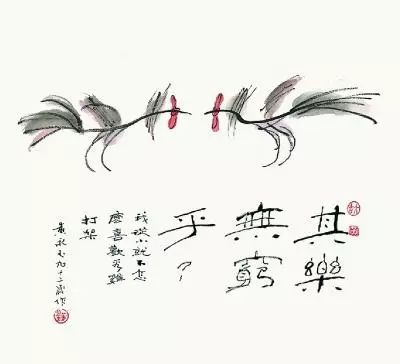 其樂
無窮
乎??
我從小就不怎
麼喜歡看雞
打架
黃永玉九十二歲作